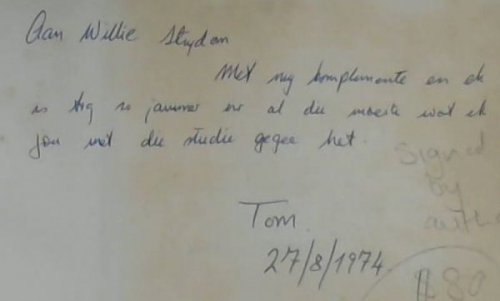 Aan Willie Strydom
Met my komplimente en ek
is tog so jammer vir al die moeite wat ek
jou met die studie gegee het.
Signed
by
Tom.
27/8/1974